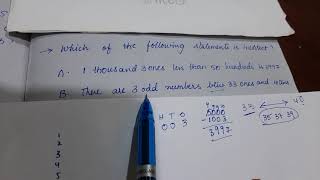 → Which of the following statements is incorrect?
A. 1 thousand 3 ones less than 50 hundreds is 3997.
B. There are 3 odd numbers b/w 33 ones and 4 tens
H T O
0 0 3
5000
- 1003
3997
33 40
35 37 39
1
2
3
4
5